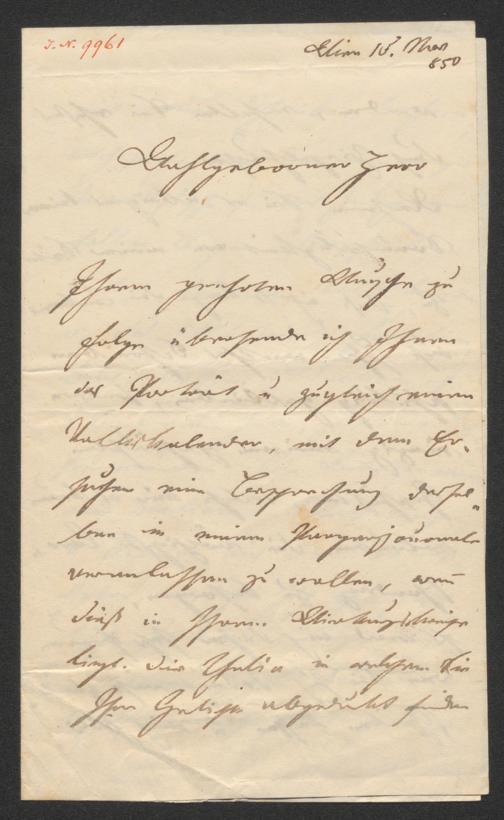 I. N. 9961
Wien 15. Nov
850
Wohlgeborner Herr
Ihrem geehrten Wunsche zu
folge übersende ich Ihnen
das Porträt u zugleich meinen
Volkskalender, mit dem Er-
suchen eine Besprechung dessel-
ben in einem Pariser Journale
veranlassen zu wollen, wenn
dieß in Ihrem Wirkungskreise
liegt. Die Thalia in welcher Sie
Ihr Gedicht abgedruckt finden